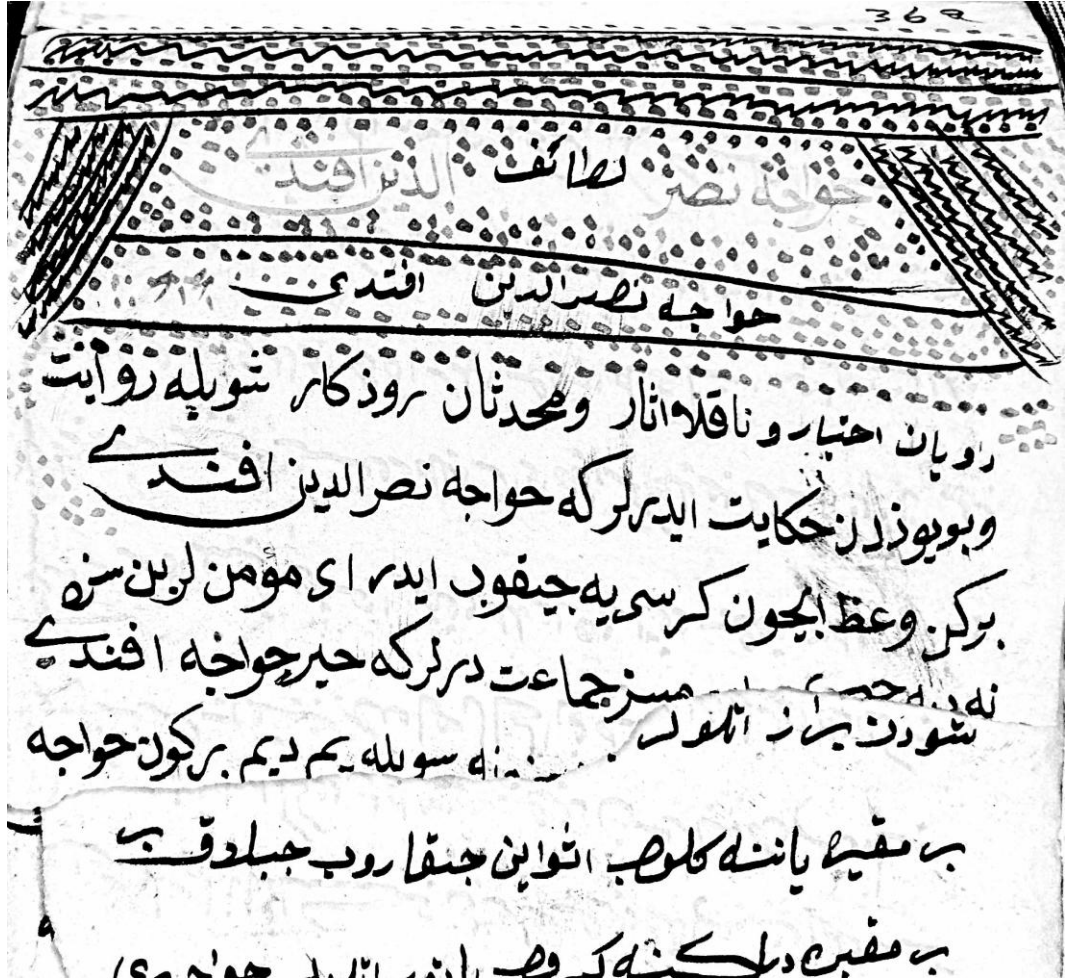 368
لطائف
خواجه نصر الدين افندى
حواجه نصر الدين افندى
رويان اخبار و ناقلان اثار ومحدثان روزكار شويله روايت
وبويوزدن حكايت ايدرلركه حواجه نصر الدين افندے
بركن وعظ ايچون كرسىيه چيقوب ايدر اى مؤمن لربن سزه
نه ديه جماعت درلركه خير خواجه افندے
شودن براز
نه سويله يم ديم بركون حواجه
بر مقبره ياننه كلوب اثوابن جيقاروب جبلاق بر
بر مقبره